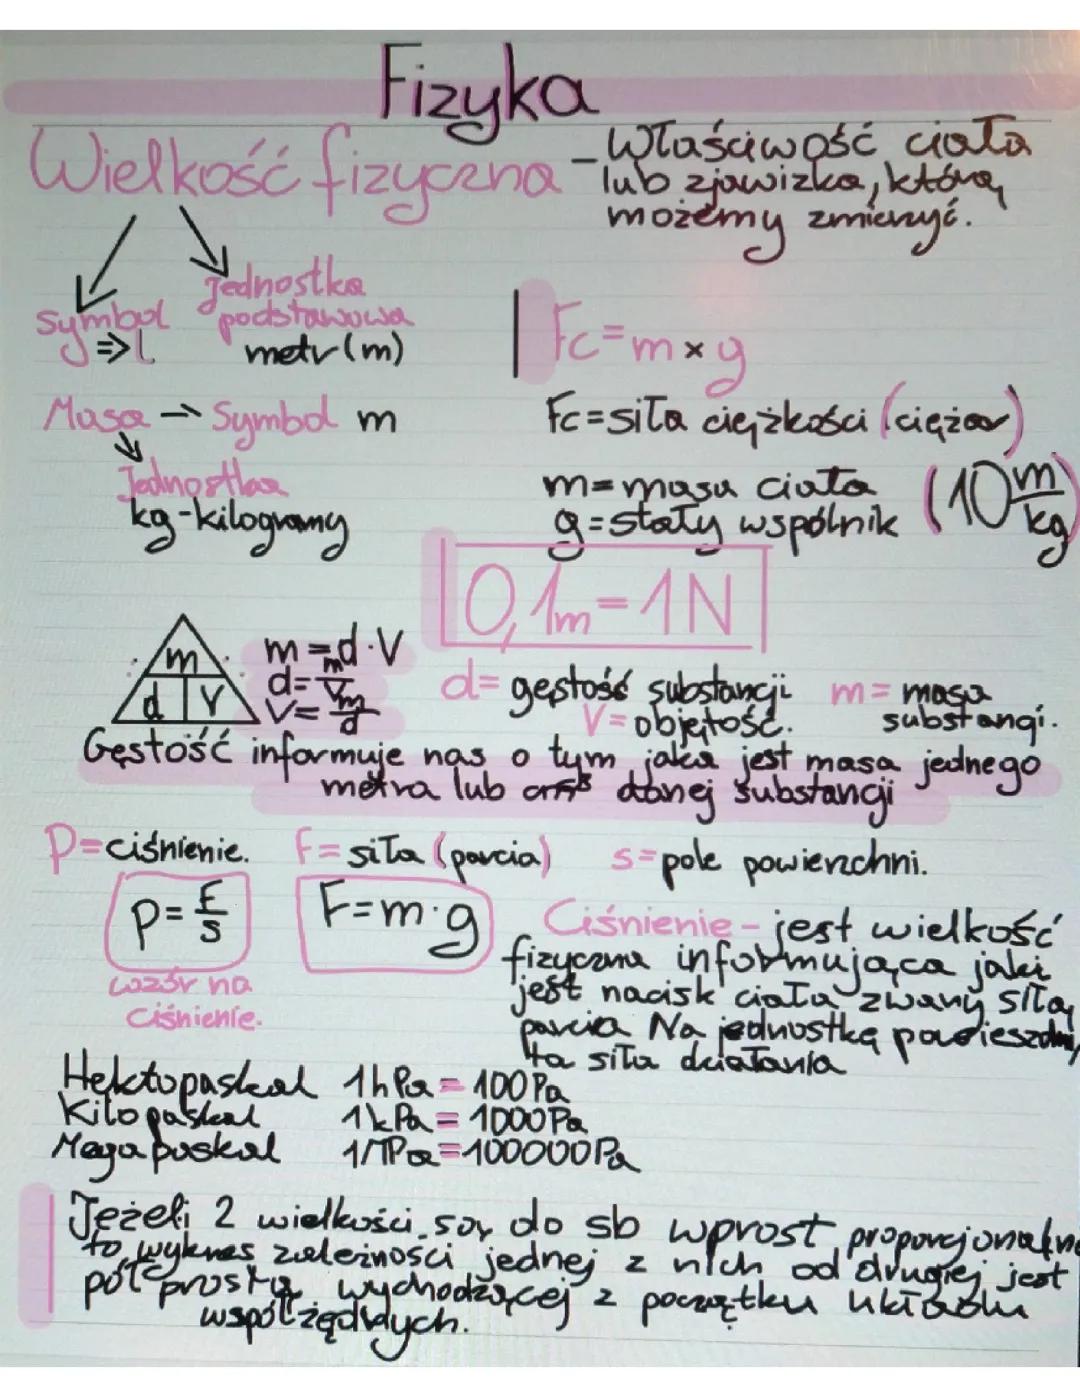 Fizyka
Wielkość fizyczna - Właściwość ciała
lub zjawizka, którą
możemy zmierzyć.
Symbol
=> l
Jednostka
podstawowa
metr (m)
Fc = m × g
Masa → Symbol m
Jednostka
kg - kilogramy
Fc = siła ciężkości (ciężar)
m = masa ciała
g = stały wspólnik (10 m/kg)
0,1m = 1N
m
d V
m = d · V
d = m/V
V = m/d
d = gęstość substancji m = masa
substangi.
V = objętość.
Gęstość informuje nas o tym jaka jest masa jednego
metra lub cm³ danej substancji
P = ciśnienie. F = siła (parcia) s = pole powierzchni.
P = F/S
F = m · g
wzór na
ciśnienie.
Ciśnienie - jest wielkość
fizyczna informująca jaki
jest nacisk ciała zwany siłą
parcia Na jednostkę
ta siła działania
Hektopaskal 1hPa = 100Pa
Kilopaskal 1kPa = 1000Pa
Megapaskal 1MPa = 100000Pa
Jeżeli 2 wielkości są do sb wprost proporcjonalne
to wykres zależności jednej z nich od drugiej jest
pół prostą wychodzącej z początku układu
współrzędnych.